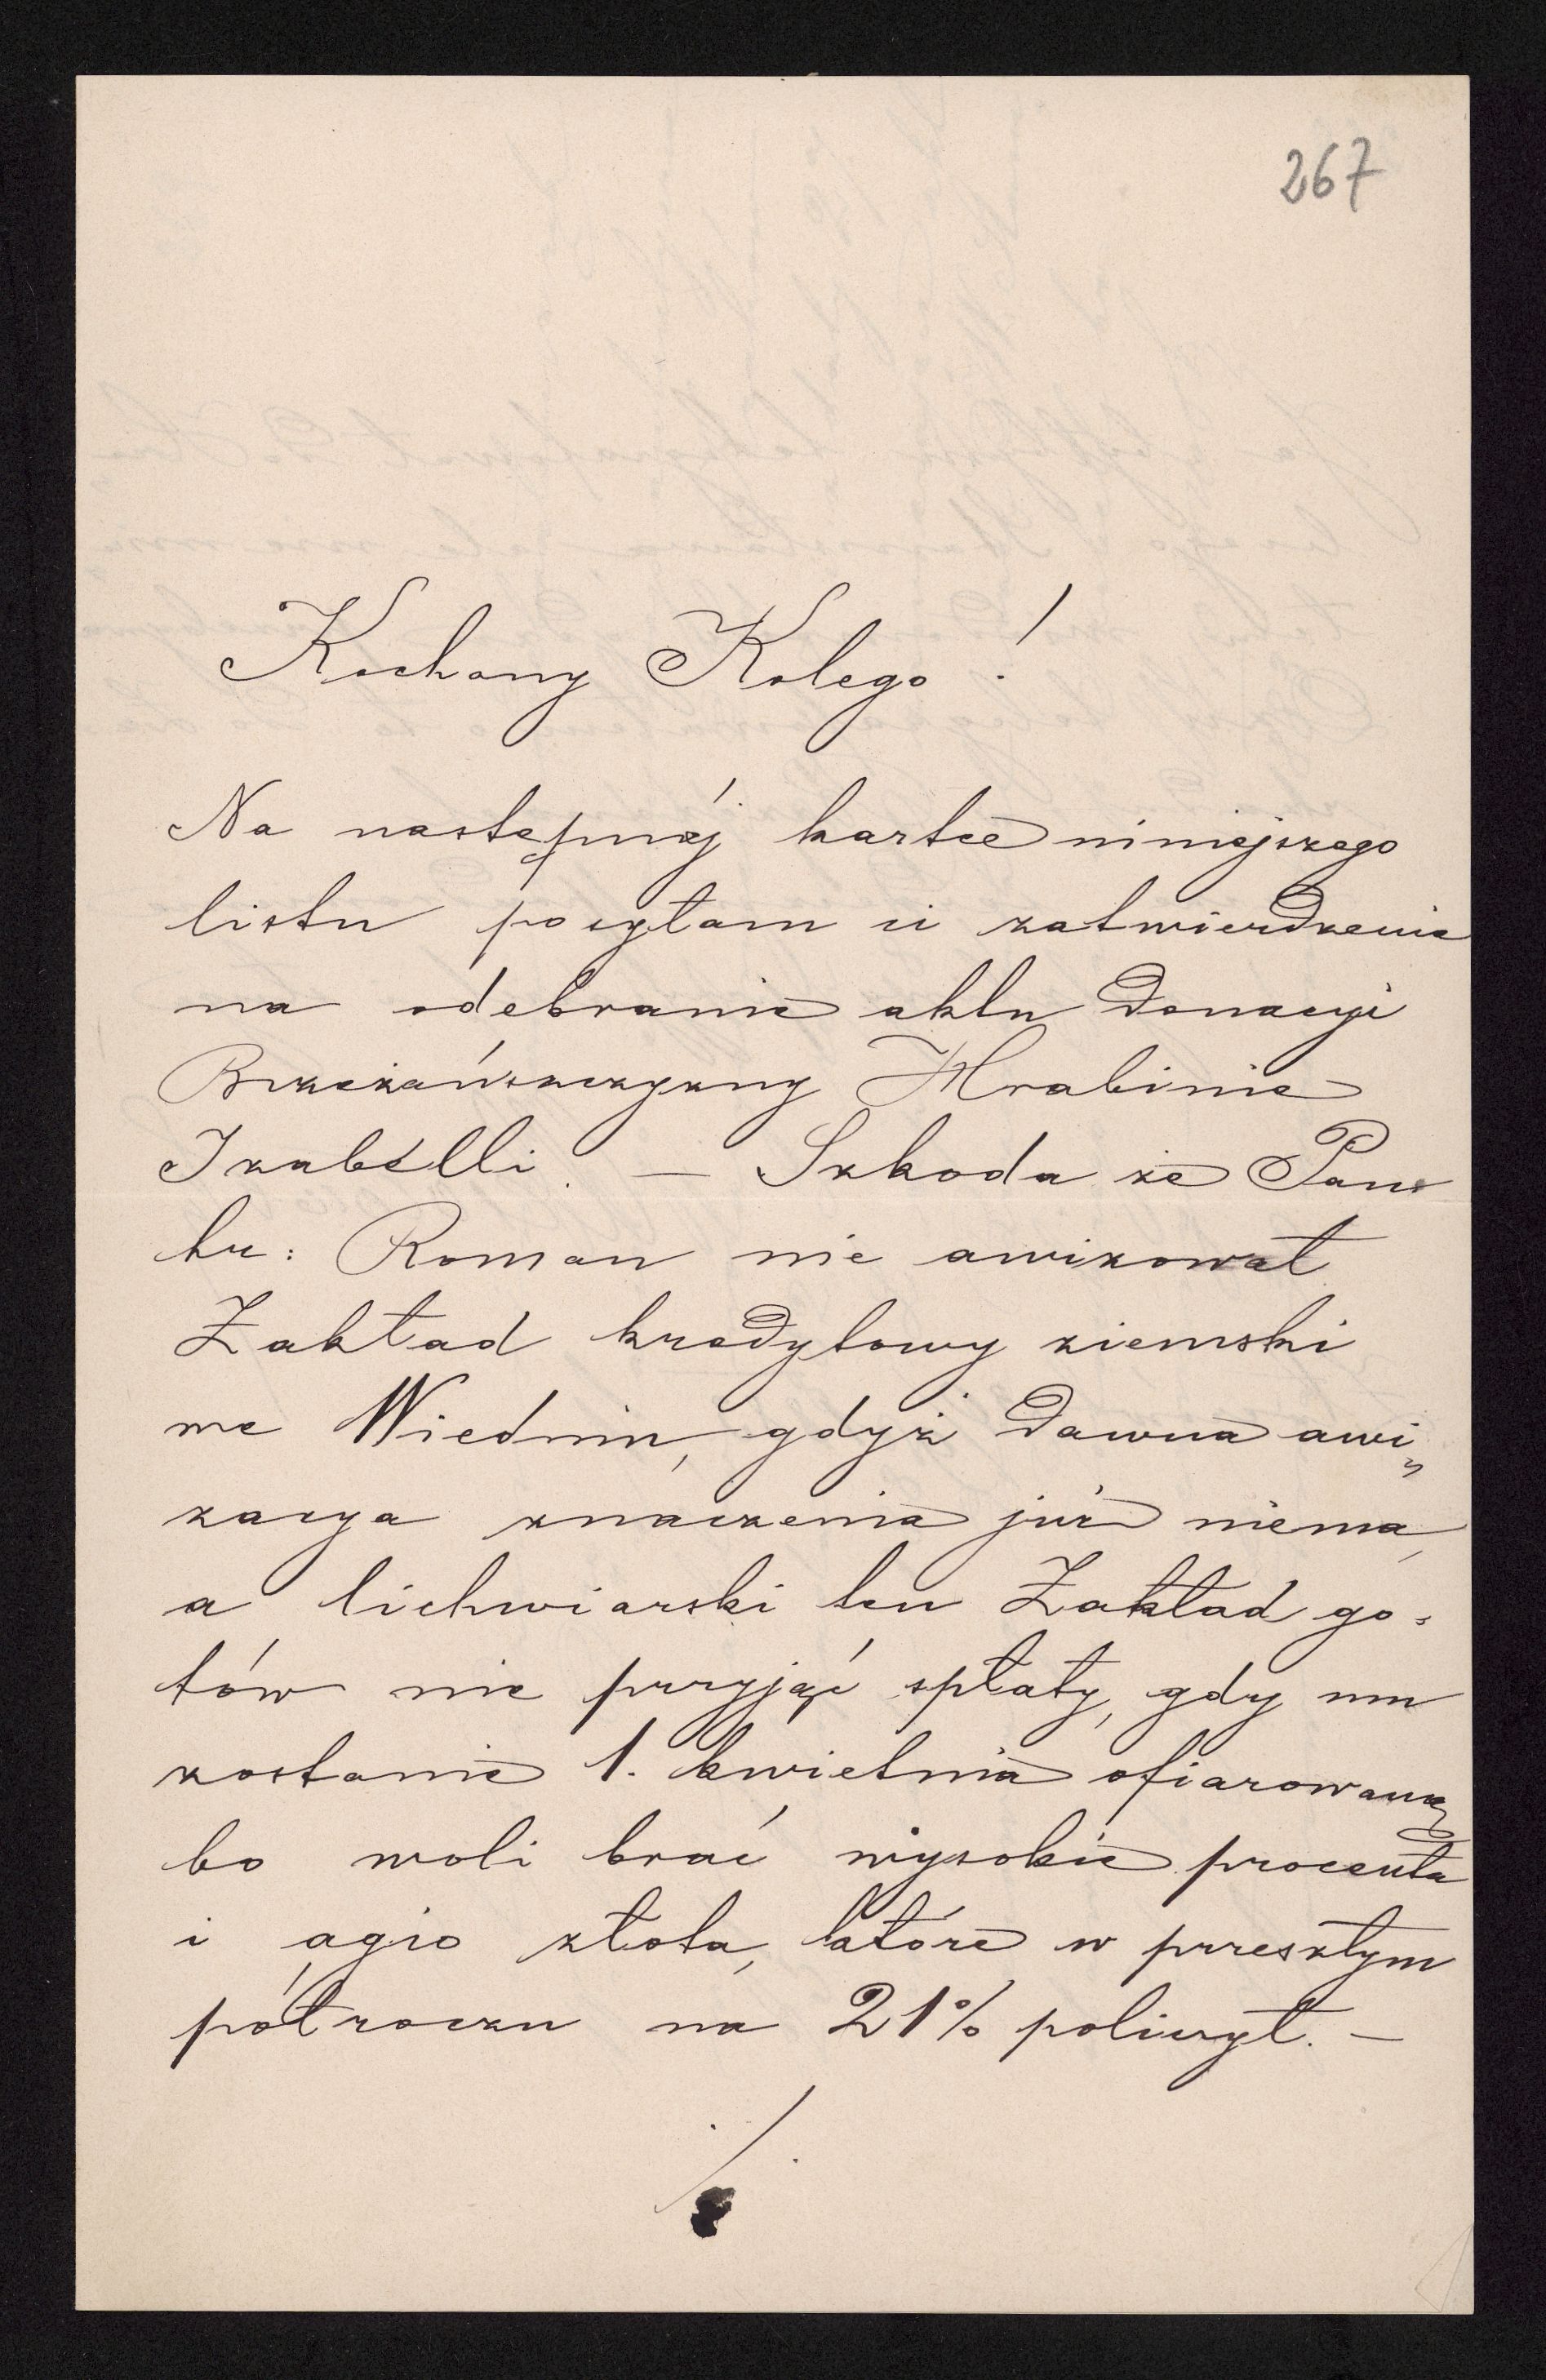 267
Kochany Kolego!
Na następnéj kartce niniejszego
listu posyłam ci zatwierdzenie
na odebranie aktu donacyi
Brzeżańszczyzny Hrabinie
Izabelli. — Szkoda że Pan
hr: Roman nie awizował
Zakład kredytowy ziemski
we Wiedniu, gdyż dawna awi„
zacya znaczenia już niema,
a lichwiarski ten Zakład go„
tów nie przyjąć spłaty, gdy mu
zostanie 1. kwietnia ofiarowaną
bo woli brać wysokie procenta
i agio złota, które w przeszłym
półroczu na 21% policzył. —
./.